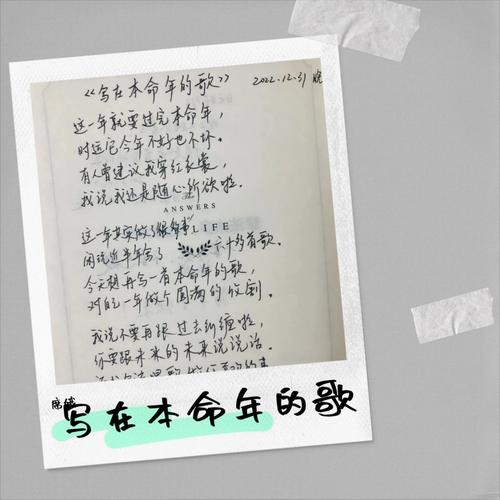 《写在本命年的歌》 2022.12.31 晚
这一年就要过完本命年，
时运它今年不好也不坏。
有人曾建议我穿红衣裳，
我说我还是随心所欲啦。
ANSWERS
这一年其实做了很多事
LIFE
闲说近半年写了 六十多首歌。
今天想再写一首本命年的歌，
对自己一年做个圆满的收割。
我说不要再跟过去纠缠啦，
你要跟未来的未来说说话。
写在本命年的歌